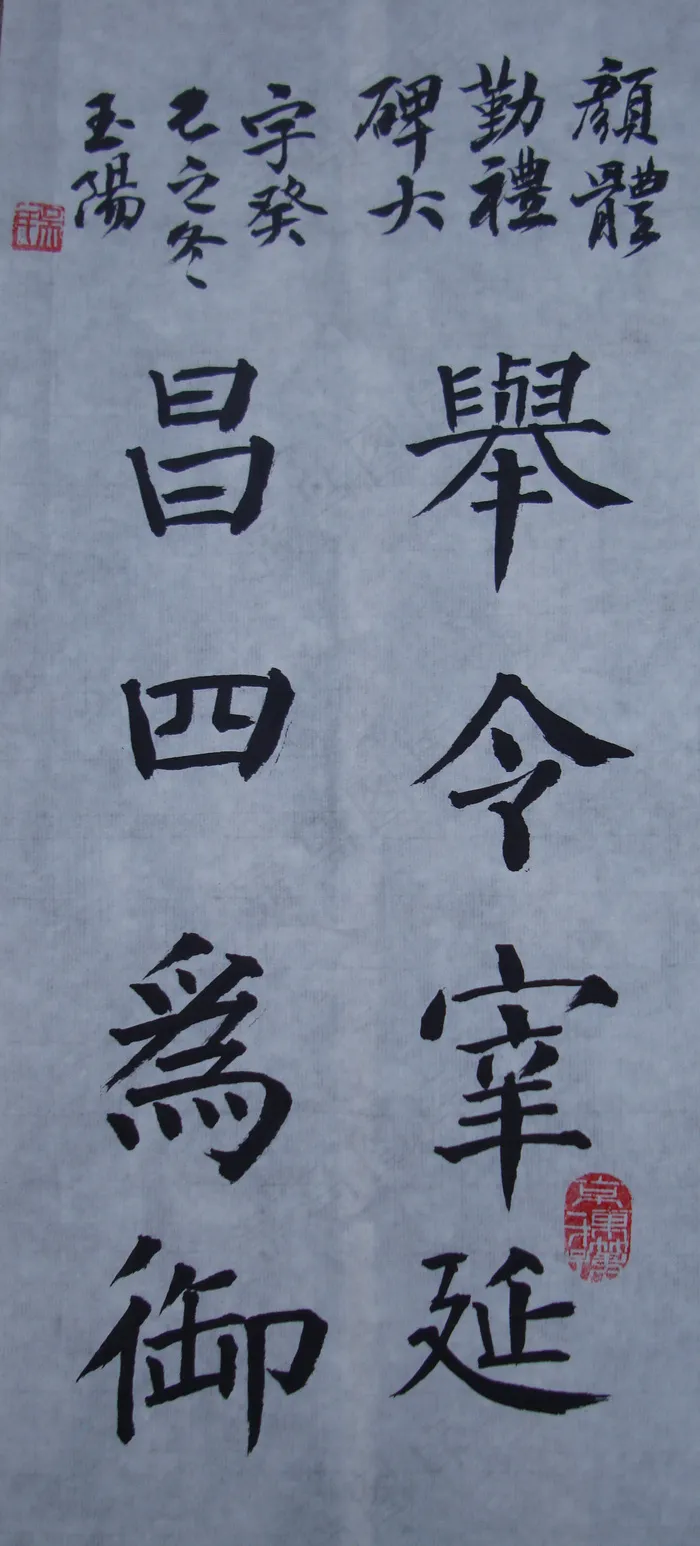 顔體
勤禮
碑大
字癸
巳之冬
玉陽
舉令宰延
昌四爲御